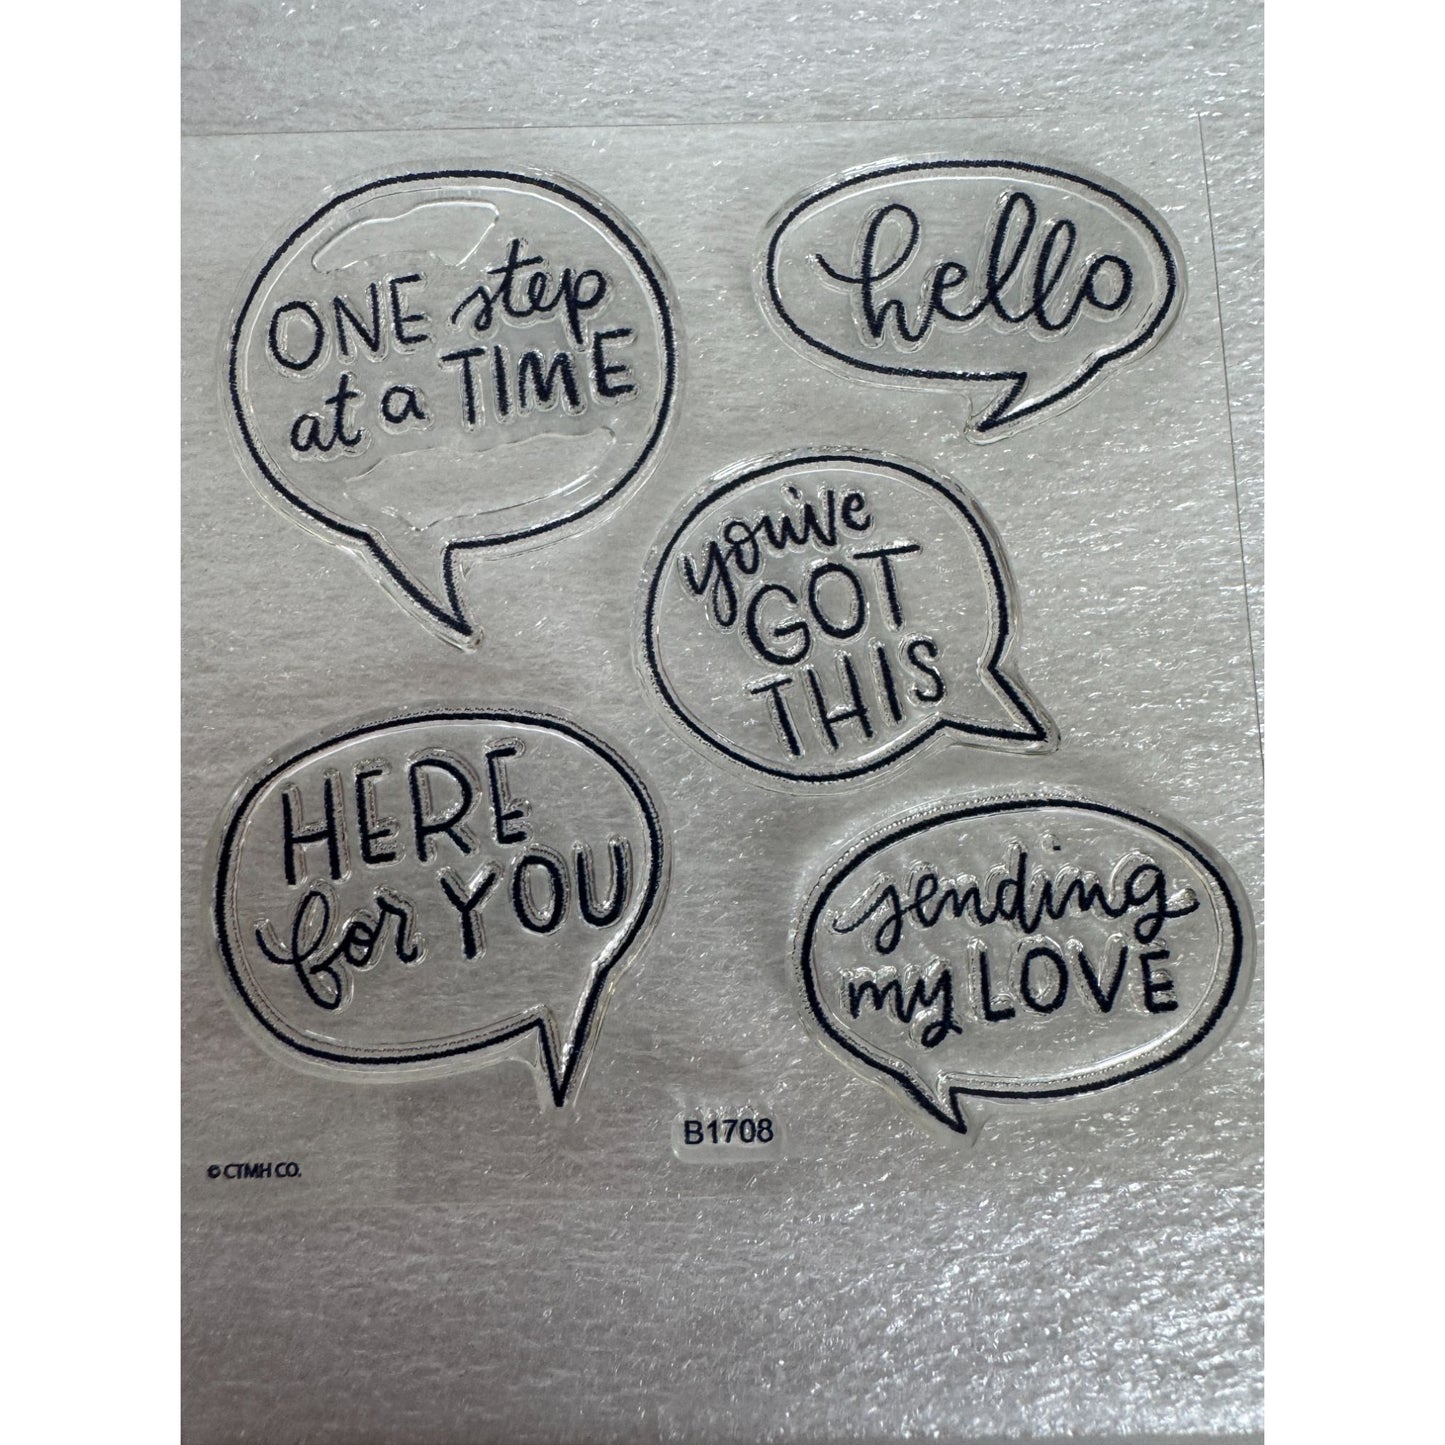 ONE step
at a TIME
hello
you've
GOT
THIS
HERE
for YOU
sending
my LOVE
B1708
© CTMH CO.